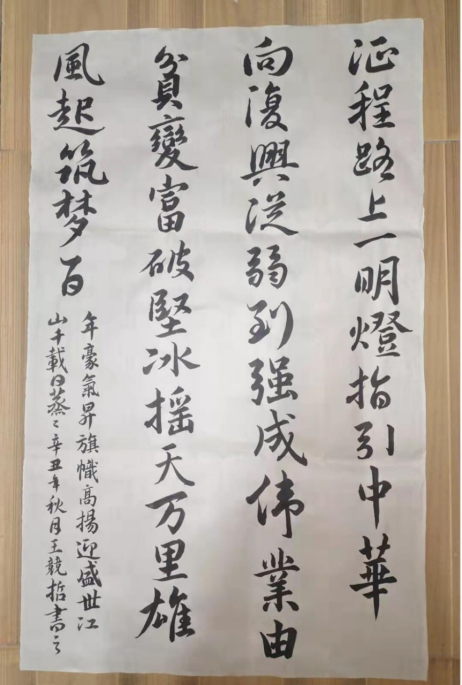 征程路上一明燈指引中華
向復興從弱到强成伟業由
貧變富破堅冰摇天万里雄
風起筑梦百
年豪氣昇旗幟髙揚迎盛世江
山千載日蒸〻辛丑年秋月王競哲書之